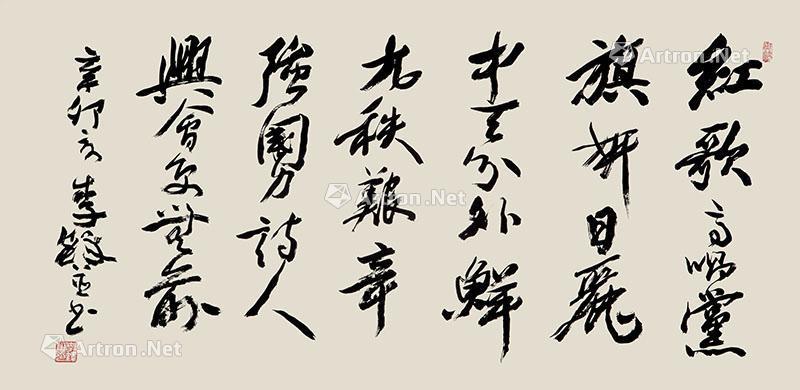 紅歌高唱黨
旗妍日麗
中天分外鮮
九秩艱辛
強國力詩人
興會更無前
辛卯 李鐸 書
Artron.Net
Artron.Net
Artron.Net
Artron.Net
Artron.Net